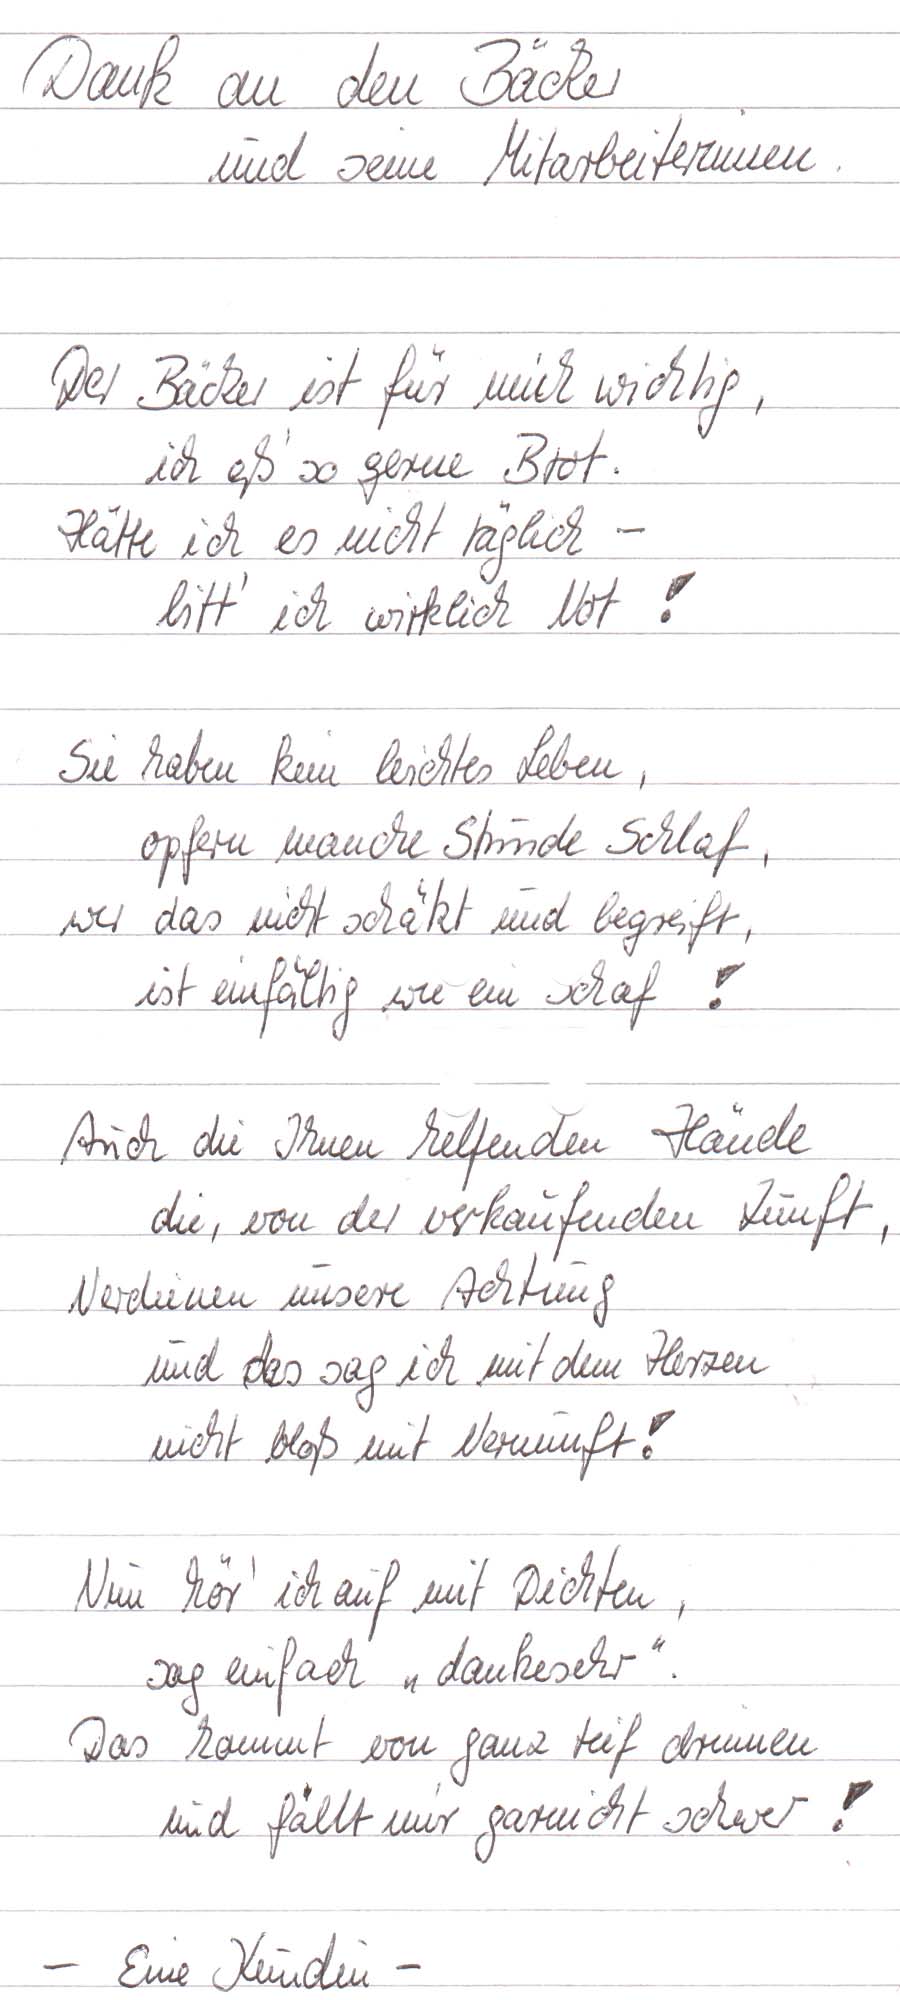 Dank an den Bäcker
und seine Mitarbeiterinnen.
Der Bäcker ist für mich wichtig,
ich eß' so gerne Brot.
Hätte ich es nicht täglich –
litt' ich wirklich Not!
Sie haben kein leichtes Leben,
opfern manche Stunde Schlaf,
wer das nicht schätzt und begreift,
ist einfältig wie ein Schaf!
Auch die Ihnen helfenden Hände
die, von der verkaufenden Zunft,
Verdienen unsere Achtung
und das sag ich mit dem Herzen
nicht bloß mit Vernunft!
Nun hör' ich auf mit Dichten,
sag einfach „dankesehr".
Das kommt von ganz tief drinnen
und fällt mir garnicht schwer!
– Eine Kundin –